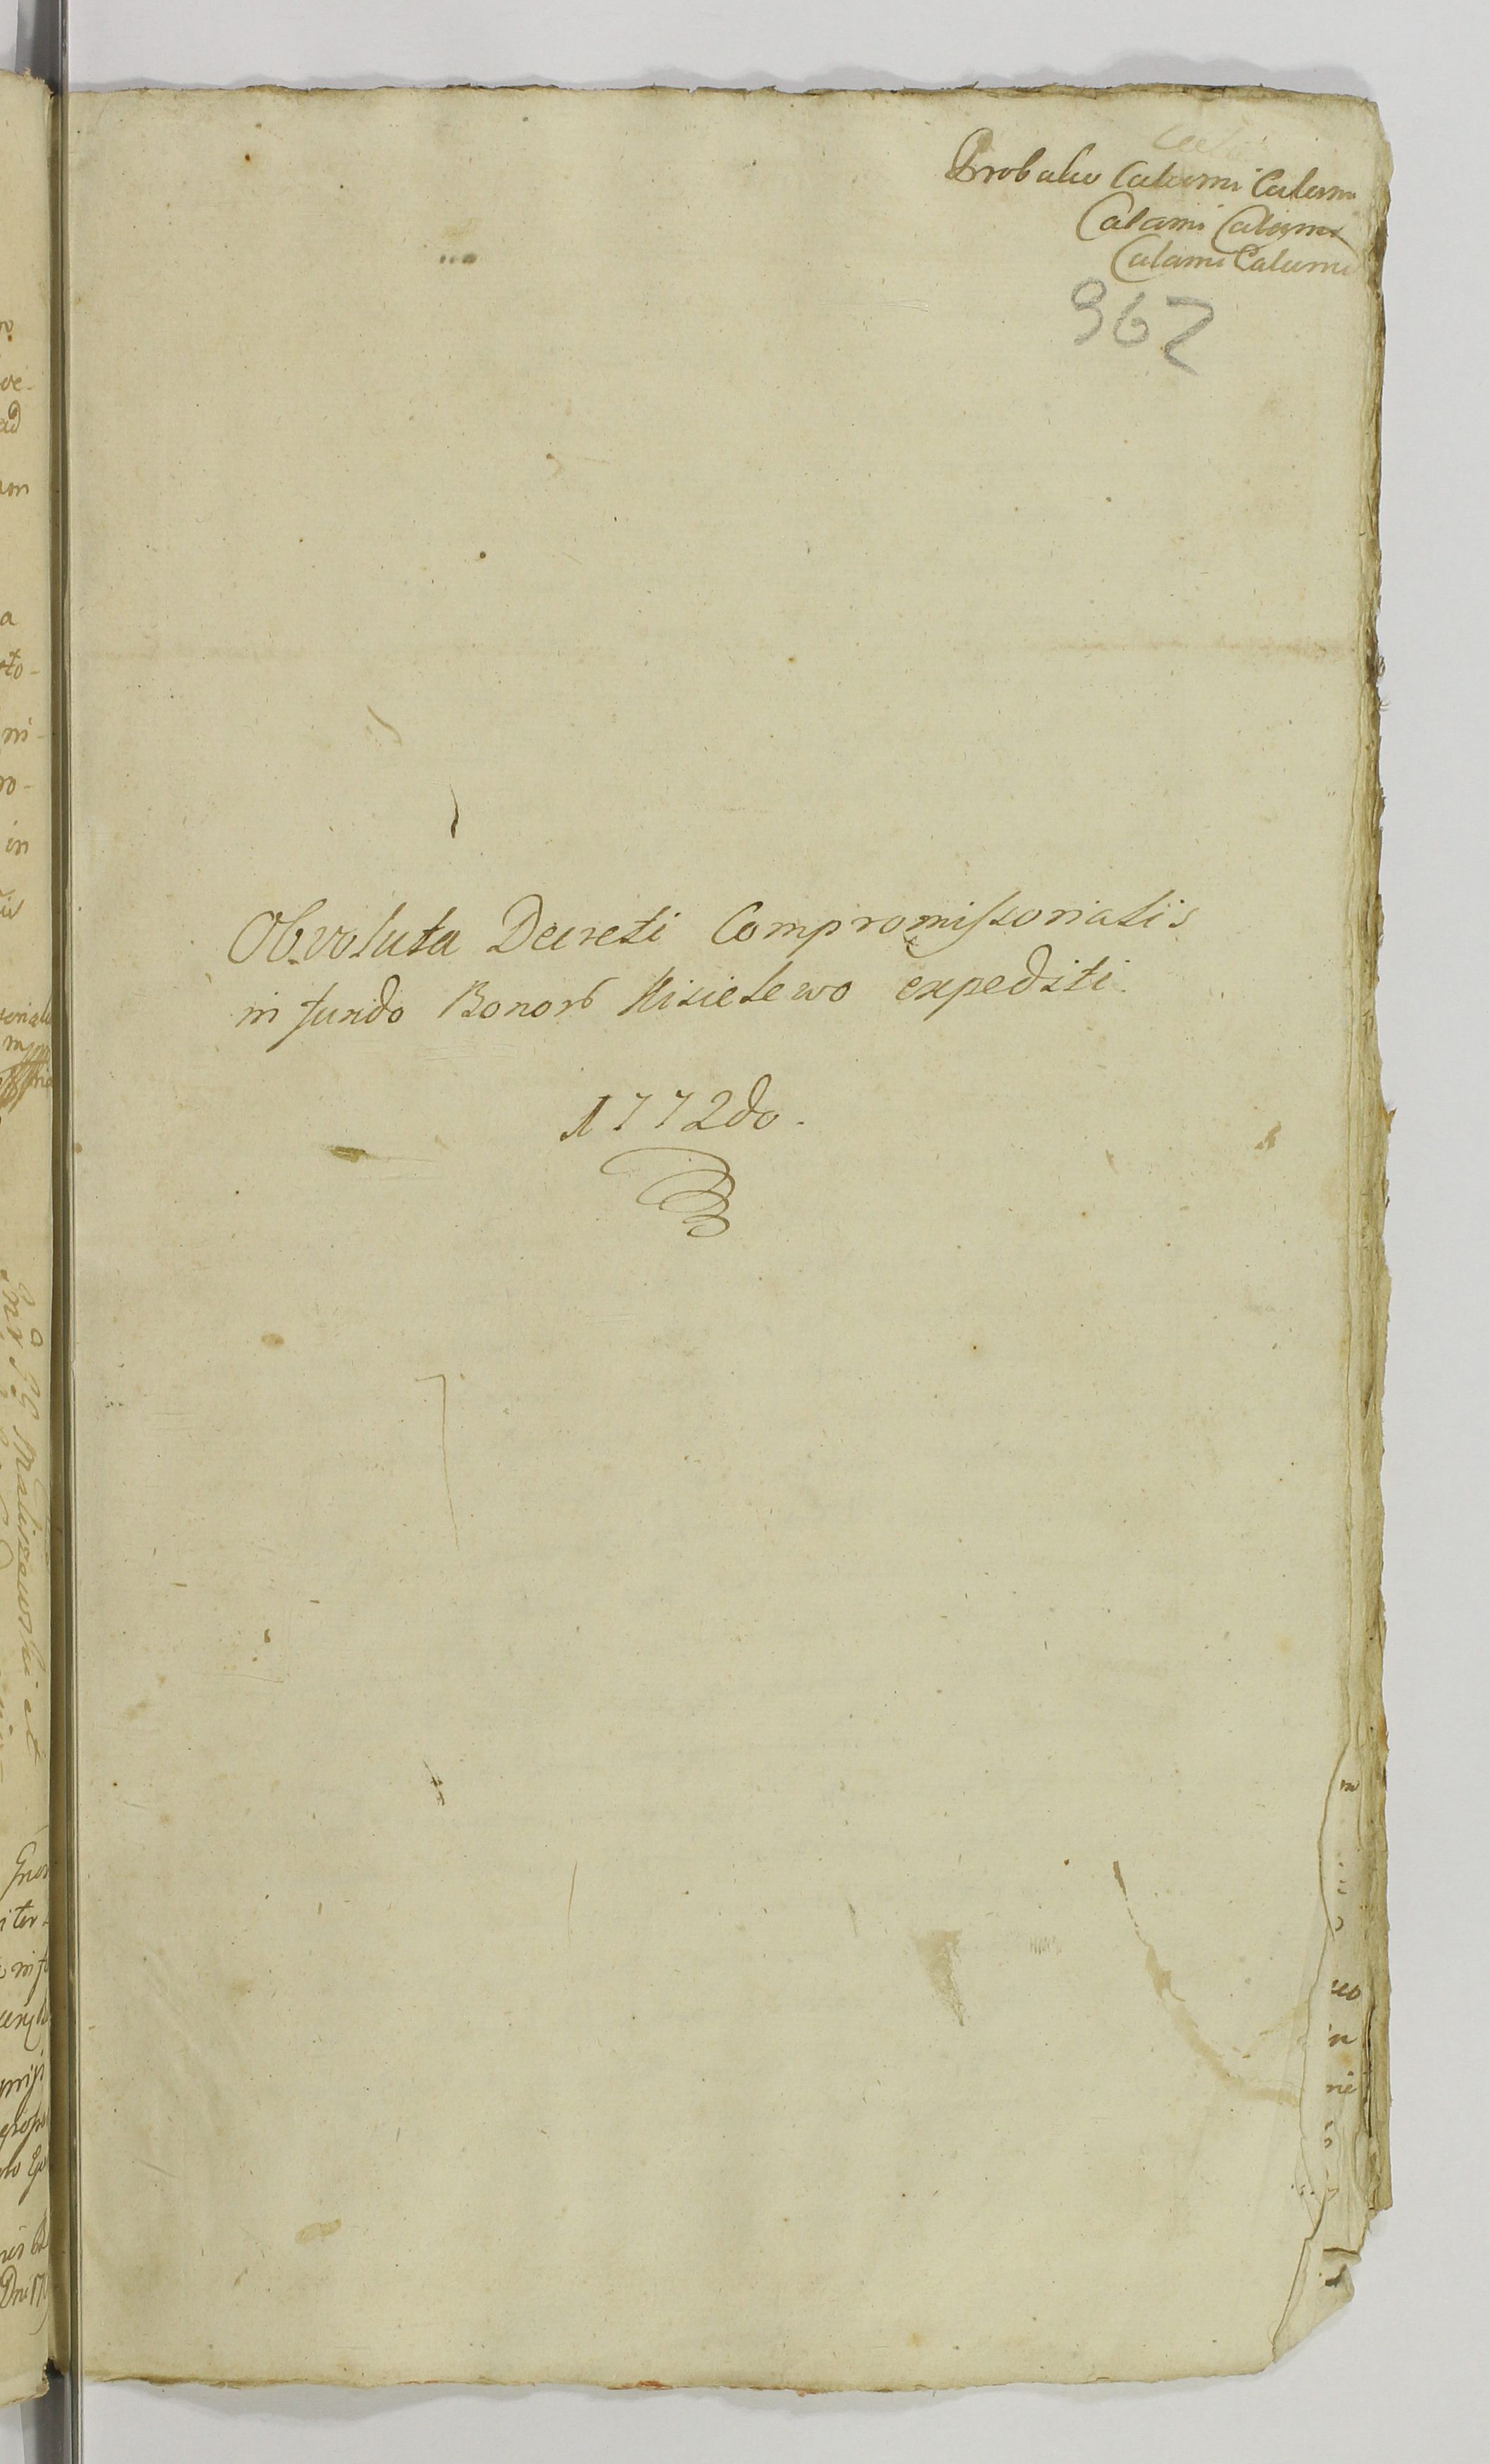 Probatio Calami Calami
Calami Calami
Calami Calami
962
Obvoluta Decreti Compromissorialis
in fundo Bonorb Kisielewo expediti.
1772do.